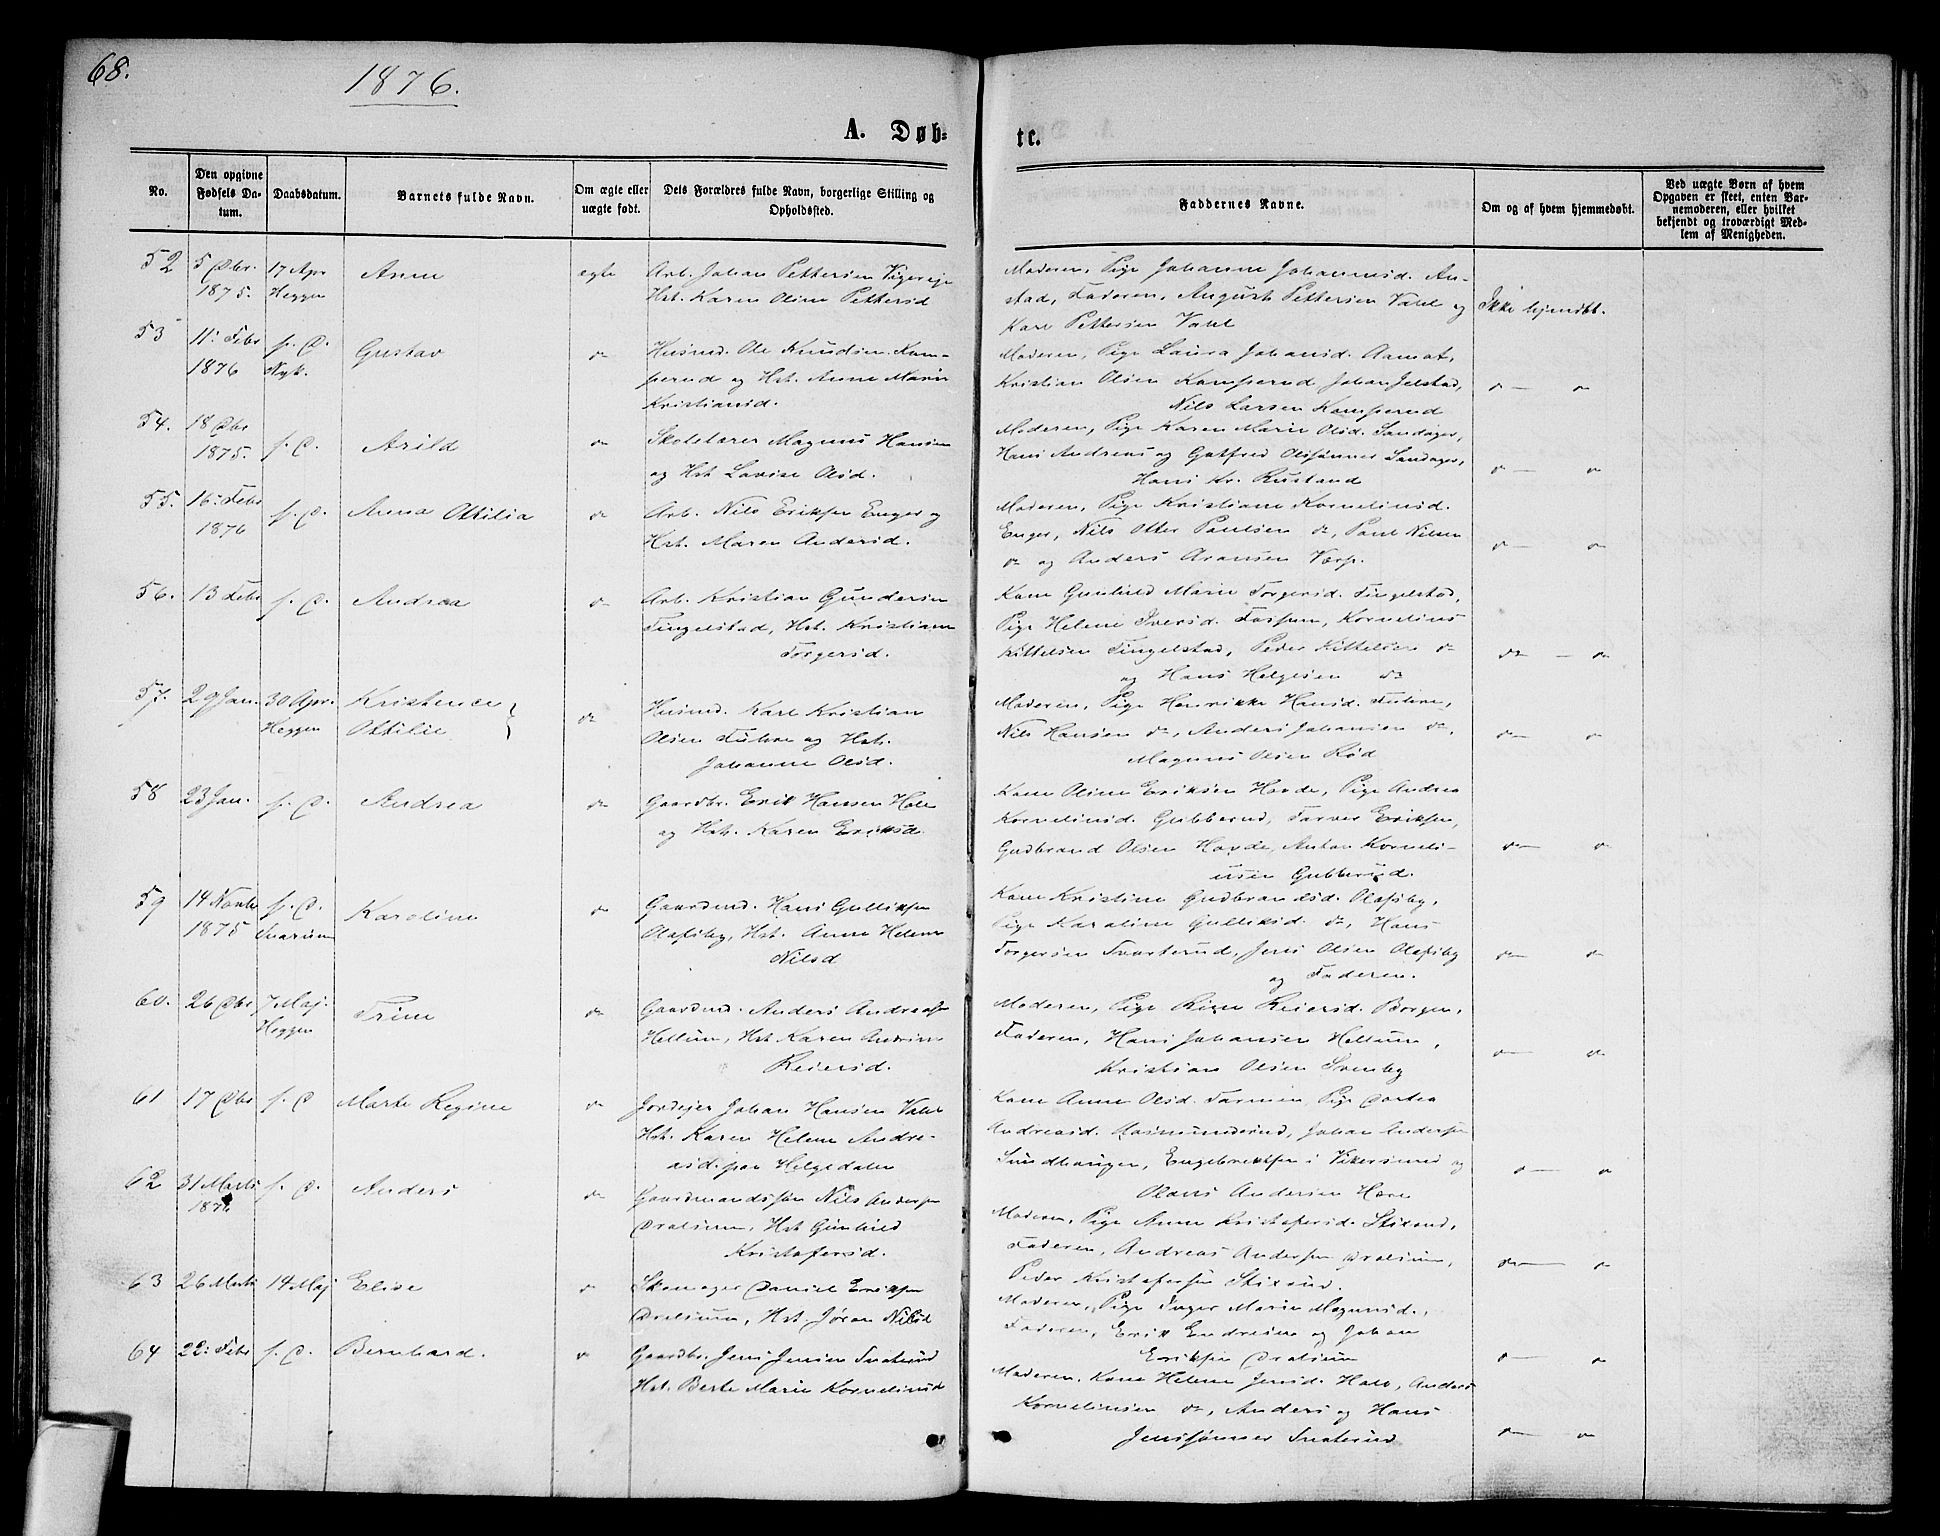 68.
1876.
A. Døb-
te.
No.
Den opgivne Fødsels Da-tum.
Daabsdatum.
Barnets fulde Navn.
Om ægte eller uægte født.
Dets Forældres fulde Navn, borgerlige Stilling og Opholdssted.
Faddernes Navne.
Om og af hvem hjemmedøbt.
Ved uægte Børn af hvem Opgaven er skeet, enten Bar-nemoderen, eller hvilket bekjendt og troværdigt Med-lem af Menigheden.
52 5 Dbr. 17 Apr Anne egte Arb. Johan Pettersen
1875. Heggen Hst. Karen Oline Pettersd
Moderen, Pige Johanne Johannesd. An-
stad, Faderen, August Pettersen Vahl og
Karl Pettersen Vahl
Ikke hjemdbt.
53 11: Febr f. D. Gustav do Husmd. Ole Knudsen Kam-
1876 Nyk. perud og Hst. Anne Marie
Kristiansd.
Moderen, Pige Laura Johansd. Aamot,
Kristian Olsen Kamperud, Johan Jelstad,
Nils Larsen Kamperud
54. 18 Dbr f. D. Arild do Skolelærer Magnus Hansen
1875. og Hst Lovise Olsd.
Moderen, Pige Karen Marie Olsd. Sandager,
Hans Andreas og Gotfred Olssønner Sandager,
Hans Kr. Rustand
55. 16: Febr f. D. Anna Ottilia do Arb. Nils Eriksen Enger og
1876 Hst. Maren Andersd.
Moderen, Pige Kristiane Korneliusd.
Enger, Nils Otter Paulsen do, Paul Nilsen
do og Anders Aronsen Vorp.
56. 13 Febr f. D. Andrea do Arb. Kristian Gundersen
Tingelstad, Hst. Kristiane
Torgersd.
Kone Gunhild Marie Torgersd. Tingelstad,
Pige Helene Iversd. Fossum, Kornelius
Kittelsen Tingelstad, Peder Kittelsen do
og Hans Helgesen do
57. 29 Jan. 30 Apr. Kristence do Husmd. Karl Kristian
Heggen Ottilie Olsen og Hst.
Johanne Olsd.
Moderen, Pige Henrikke Hansd.
Nils Hansen do, Anders Johansen do,
Magnus Olsen Rød
58 23 Jan. f. D. Andrea do Gaardbr. Erik Hansen Hole
og Hst. Karen Eriksd.
Kone Oline Eriksen Hovde, Pige Andrea
Korneliusd. Gubberud, Farver Eriksen,
Gudbrand Olsen Hovde, Anton Korneli-
usen Gubberud.
59 14 Novbr f. D. Karoline do Gaardmd. Hans Gulliksen
1875 Snarum Olafsby, Hst. Anne Helene
Nilsd
Kone Kristine Gudbrandsd. Olafsby,
Pige Karoline Gulliksd. do, Hans
Torgersen Svarterud, Jens Olsen Olafsby
og Faderen.
60. 26 Dbr 7 Maj. Trine do Gaardmd. Anders Andreass
Heggen Hellum, Hst Karen Andrine
Reiersd.
Moderen, Pige Reiersd. Borgen,
Faderen, Hans Johansen Hellum,
Kristian Olsen Svenby
61 17 Dbr f. D Marte Regine do Jordejer Johan Hansen Vahl
Hst. Karen Helene Andre-
asd. paa Helgedalen
Kone Anne Olsd. Formoen, Pige Dortea
Andreasd. Aasmunderud, Johan Andersen
Sundhaugen, Engebretsen i Vikersund og
Olaus Andersen Hære
62 31 Marts f. D. Anders do Gaardmandssøn Nils Andersen
1876 Dralsrum, Hst Gunhild
Kristofersd.
Moderen, Pige Anne Kristofersd. Stixrud,
Faderen, Andreas Andersen Dralsrum,
Peder Kristofersen Stixrud.
63 26 Marts 14 Maj Elise do Skomager Daniel Eriksen
Dralsrum, Hst. Jøran Nilsd
Moderen, Pige Inger Marie Magnusd.,
Faderen, Erik Endresen og Johan
Eriksen Dralsrum
64 22: Febr f. D. Bernhard. do Gaardbr. Jens Jensen Snaterud
Hst. Berte Marie Kornelinsd
Moderen, Kone Helene Jensd. Hovo, Anders
Kornelinsen do, Anders og Hans
Jenssønner Snaterud